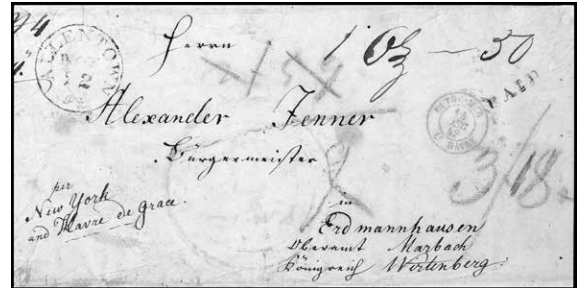 ALLENTOWN
Herrn
1 Oz — 50
PAID
Alexander Jenner
Bürgermeister
3/18
per
New York
and Havre de Grace.
in
Erdmannhausen
Oberamt Marbach
Königreich Wirtenberg.